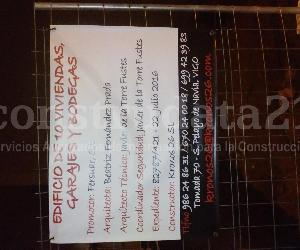 EDIFICIO DE 10 VIVIENDAS,
GARAJES Y BODEGAS
Promotor: Persuar,
Arquitecto: Beatriz Fernández Prado
Arquitecto Técnico: Javier de la Torre Fustes
Coordinador Seguridad: Javier de la Torre Fustes
Expediente: 82987/421 - 22 julio 2016
Constructor: Kronos 26 SL
Tlfno 986 24 86 31 / 670 24 00 18 / 699 42 59 83
Tomada 70 - S. Pelayo de Navia, VIGO
constructa2
Servicios a la Construcción